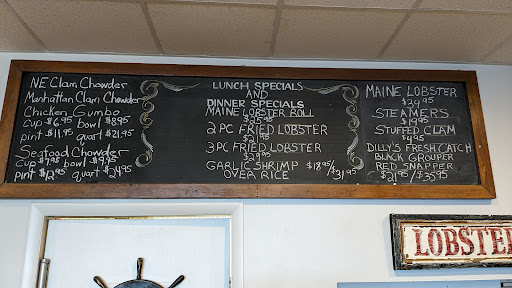 NE Clam Chowder
Manhattan Clam Chowder
Chicken Gumbo
cup $6.95 bowl $8.95
pint $11.95 quart $21.95
Seafood Chowder
Cup $7.95 bowl $9.95
pint $12.95 quart $24.95
LUNCH SPECIALS
AND
DINNER SPECIALS
MAINE LOBSTER ROLL
2 PC FRIED LOBSTER
$21.95
3 PC FRIED LOBSTER
$29.95
GARLIC SHRIMP $18.95/
OVER RICE $31.95
MAINE LOBSTER
$39.95
STEAMERS
$19.95
STUFFED CLAM
$4.95
DILLY'S FRESH CATCH
BLACK GROUPER
RED SNAPPER
$21.95/$35.95
LOBSTE